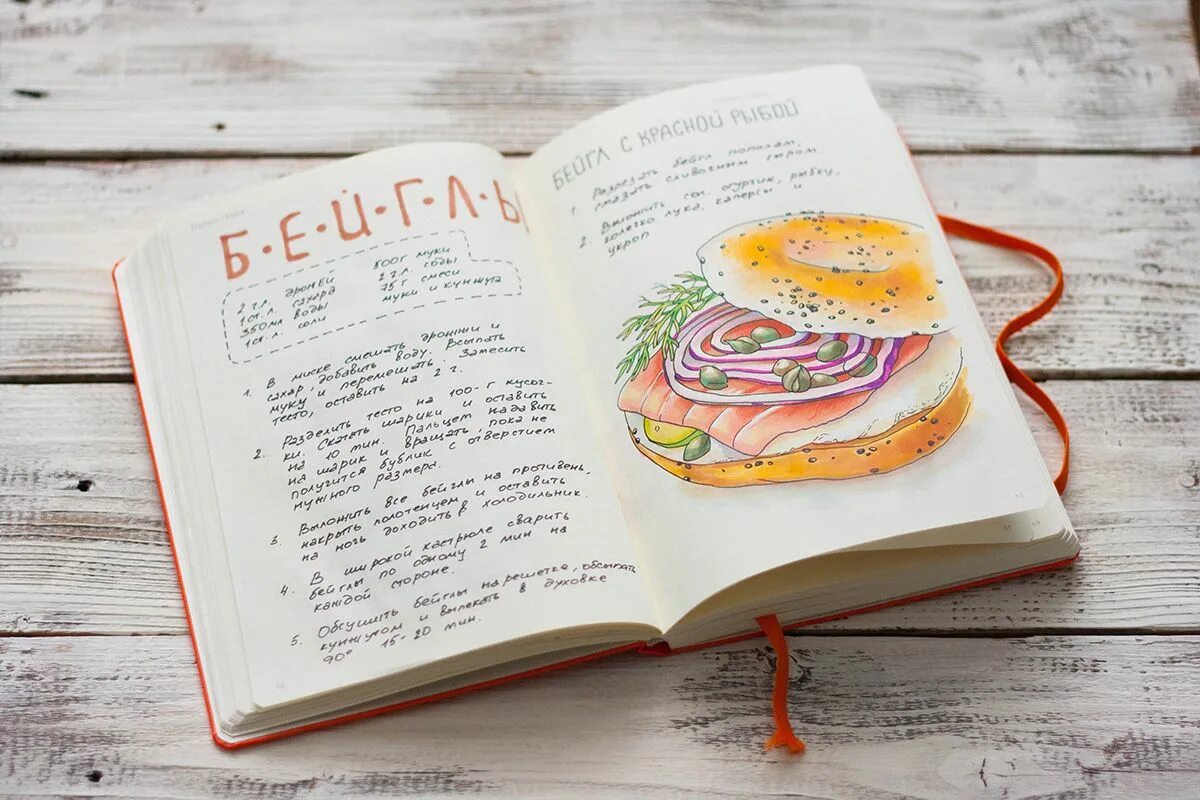 Б·Е·Й·Г·Л·Ы
2 ч.л. дрожжей
1 ст.л. сахара
350мл воды
1 ст. л. соли
500г муки
2 ч.л. соды
75 г смеси
муки и кунжута
1. В миске смешать дрожжи и
сахар, добавить воду. Всыпать
муку и перемешать. Замесить
тесто, оставить на 2 г.
2. Разделить тесто на 100-г кусоч-
ки. Скатать шарики и оставить
на 10 мин. Пальцем надавить
на шарик и вращать, пока не
получится бублик с отверстием
нужного размера.
3. Выложить все бейглы на противень,
накрыть полотенцем и оставить
на ночь доходить в холодильник.
4. В широкой кастрюле сварить
бейглы по одному 2 мин на
каждой стороне.
5. Обсушить бейглы на решетке, обсыпать
кунжутом и выпекать в духовке
90° 15-20 мин.
БЕЙГЛ С КРАСНОЙ РЫБОЙ
1. Разрезать бейгл пополам,
смазать сливочным сыром
2. Выложить сол. огурчик, рыбку,
колечко лука, каперсы и
укроп